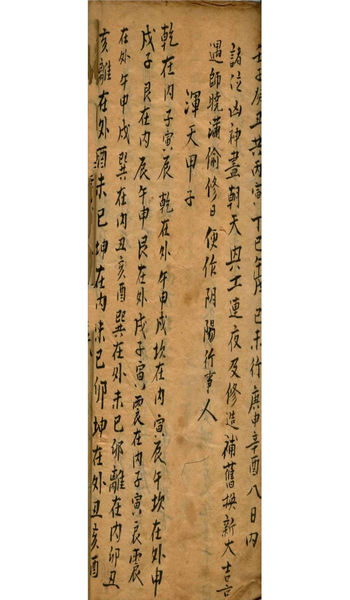 壬子癸丑共丙寅丁巳午戌己未行庚申辛酉八日内
諸位凶神盡朝天與工連夜及修造補舊換新大吉言
遇師曉滿偷修日便作阴陽行事人
渾天甲子
乾在内子寅辰乾在外午申戌坎在内寅辰午坎在外申
戌子艮在内辰午申艮在外戌子寅震在内子寅辰震
在外午申戌巽在内丑亥酉巽在外未巳卯離在内卯丑
亥離在外酉未巳坤在内未巳卯坤在外丑亥酉